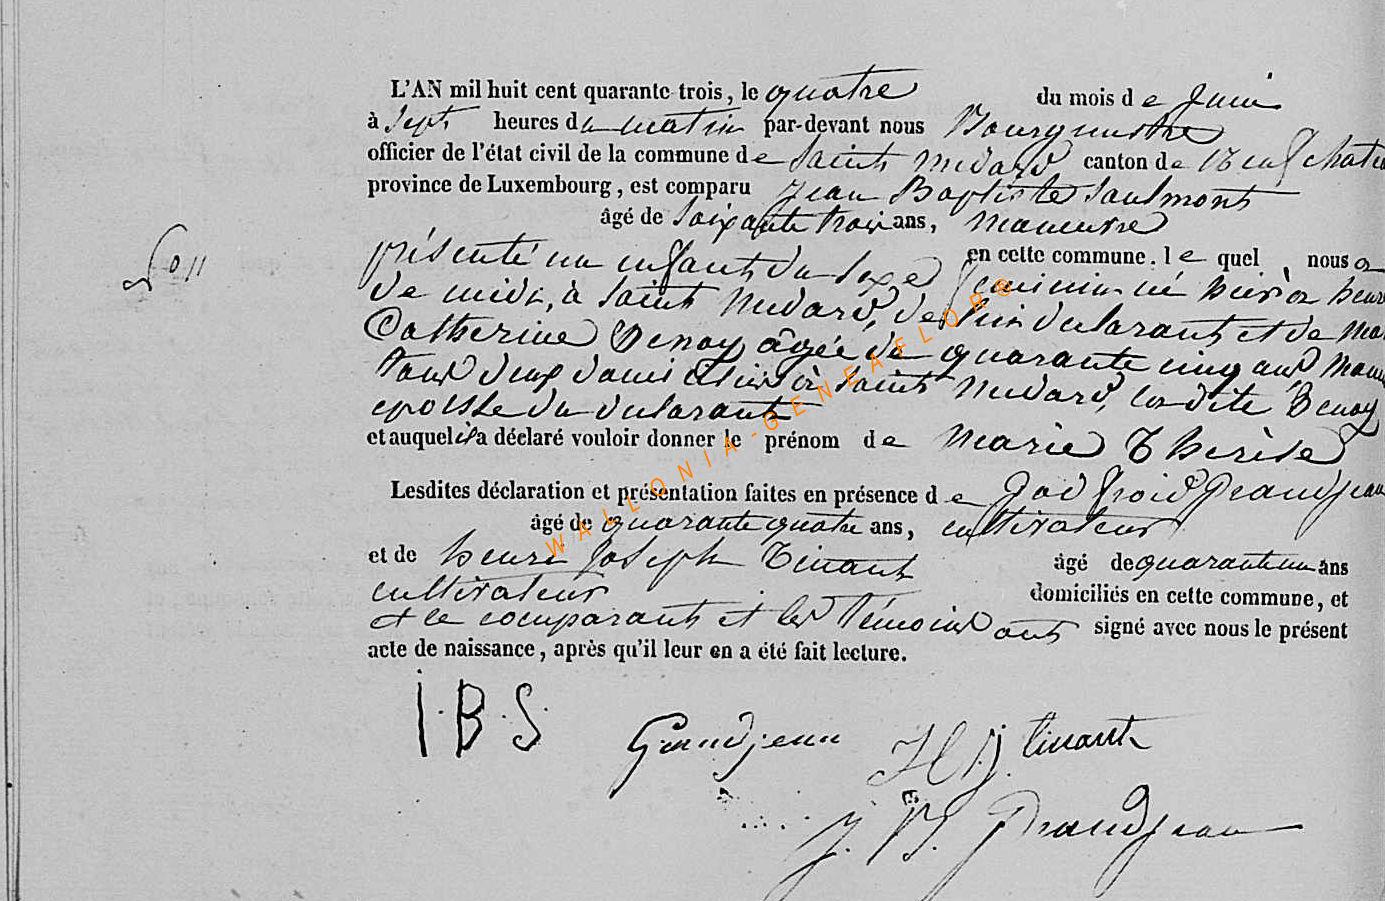 L'AN mil huit cent quarante trois, le quatre du mois de Juin
à Sept heures du matin par-devant nous Bourguestre
officier de l'état civil de la commune de Saint Médard canton de Neufchate
province de Luxembourg, est comparu Jean Baptiste Saulmont
âgé de Soixante trois ans, Maneuvre
11
en cette commune. le quel nous a
présenté un enfant du Sexe féminin né hier à heure
de midi, à Saint Médard, de lui déclarant et de Mar
Catherine Benoy âgée de quarante cinq ans Maneu
tous deux domiciliés à Saint Médard, la dite Benoy
épouse du déclarant
et auquel il a déclaré vouloir donner le prénom de Marie Thérèse
Lesdites déclaration et présentation faites en présence de Godfroid Grandjean
âgé de quarante quatre ans, cultivateur
et de henri Joseph Tinant âgé de quarante un ans
cultivateur domiciliés en cette commune, et
et le comparant et les témoins ont signé avec nous le présent
acte de naissance, après qu'il leur en a été fait lecture.
I.B.S.
Grandjean H.J. tinant
J. B. Grandjean
WALLONIA-GENEAFLOR®